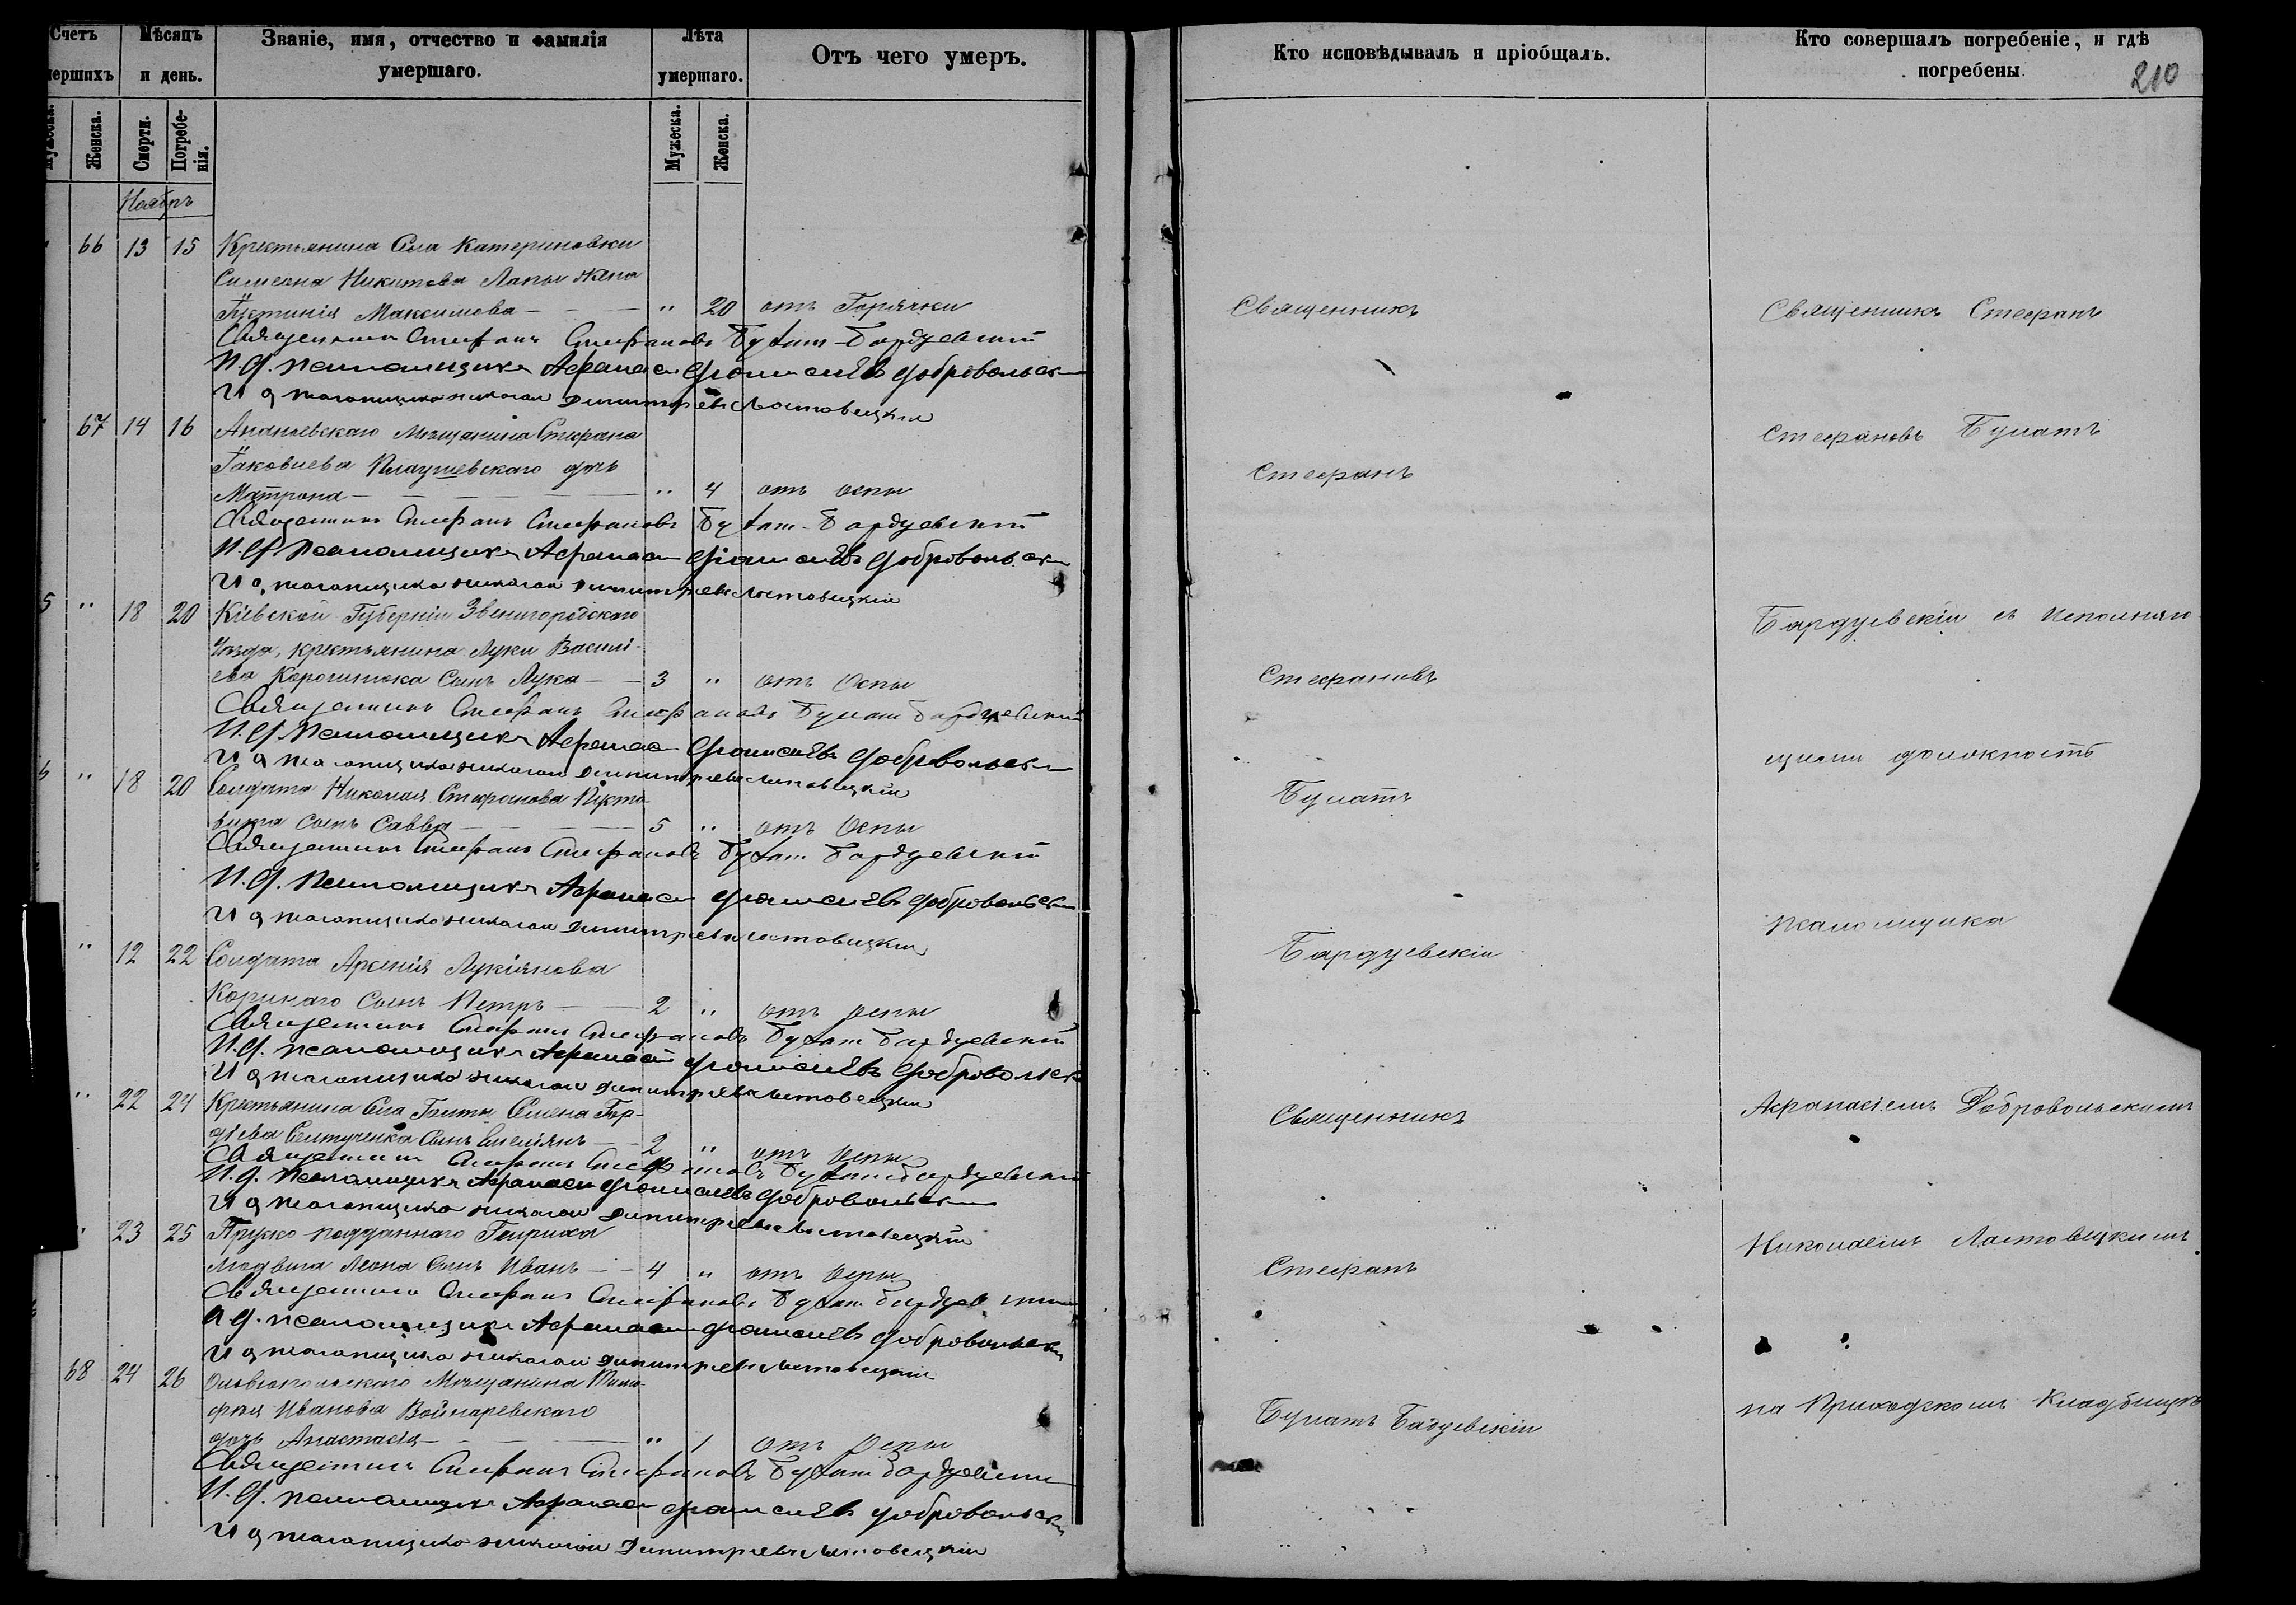 Счетъ
мершихъ
Мѣсяцъ
и день.
Званіе, имя, отчество и фамилія
умершаго.
Лѣта
умершаго.
Отъ чего умеръ.
Женска.
Смерти.
Погребе-
нія.
Мужеска.
Женска.
Ноябрь
66 13 15 Крестьянина Села Катериновки
Симеона Никитова Лапы жена
Іустинія Максимова " 20 отъ Горячки
Священникъ Стефанъ Стефановъ Булат-Бардуевскій
И. д. псаломщика Афанасій Добровольскі
И д псаломщика Николай Димитріевъ Ластовецкій
67 14 16 Ананьевскаго Мѣщанина Стефана
Іаковлева дочь
Матрона " 4 отъ оспы
Священникъ Стефанъ Стефановъ Булат-Бардуевскій
И. д. псаломщика Афанасій Добровольскі
И д псаломщика Николай Димитріевъ Ластовецкій
5 " 18 20 Кіевской Губерніи Звенигородскаго
Уѣзда, крестьянина Луки Василі-
ева сынъ Лука 3 " отъ Оспы
Священникъ Стефанъ Стефановъ Булат Бардуевскій
И. д. псаломщика Афанасій Добровольскі
И д псаломщика Николай Димитріевъ Ластовецкій
" 18 20 Солдата Николая Стефанова
сынъ Савва 5 " отъ Оспы
Священникъ Стефанъ Стефановъ Булат Бардуевскій
И. д. псаломщика Афанасій Добровольскі
И д псаломщика Николай Димитріевъ Ластовецкій
" 12 22 Солдата Арсенія Лукіянова
сынъ Петръ 2 " отъ оспы
Священникъ Стефанъ Стефановъ Булат Бардуевскій
И. д. псаломщика Афанасій Добровольск
И д псаломщика Николай Димитріевъ Ластовецкій
" 22 24 Крестьянина Села Голты Семена Гор-
діева сынъ 2 " отъ Оспы
Священникъ Стефанъ Стефановъ Булат Бардуевскій
И. д. псаломщика Афанасій Добровольскі
И д псаломщика Николай Димитріевъ Ластовецкій
" 23 25 подданнаго Генриха
Людвига Леона сынъ Иванъ 4 " отъ Оспы
Священникъ Стефанъ Стефановъ Булат Бардуев
И д. псаломщика Афанасій Добровольскі
И д псаломщика Николай Димитріевъ Ластовецкій
68 24 26 Ольвіопольскаго Мѣщанина Тимо-
фея Иванова Войнаревскаго
дочь Анастасія " 1 отъ Оспы
Священникъ Стефанъ Стефановъ Булат Бардуевскі
И. д. псаломщика Афанасій Добровольскі
И д псаломщика Николай Димитріевъ Ластовецкій
Кто исповѣдывалъ и пріобщалъ.
Священникъ
Стефанъ
Стефановъ
Булатъ
Бардуевскій
Священникъ
Стефанъ
Булатъ Бадуевскій
Кто совершалъ погребеніе, и гдѣ
погребены.
210
Священникъ Стефанъ
Стефановъ Булатъ
Бардуевскій съ Исполняю-
щими должность
псаломщика
Афанасіемъ Добровольскимъ
Николаемъ Ластовецкимъ
на Приходскомъ Кладбищѣ